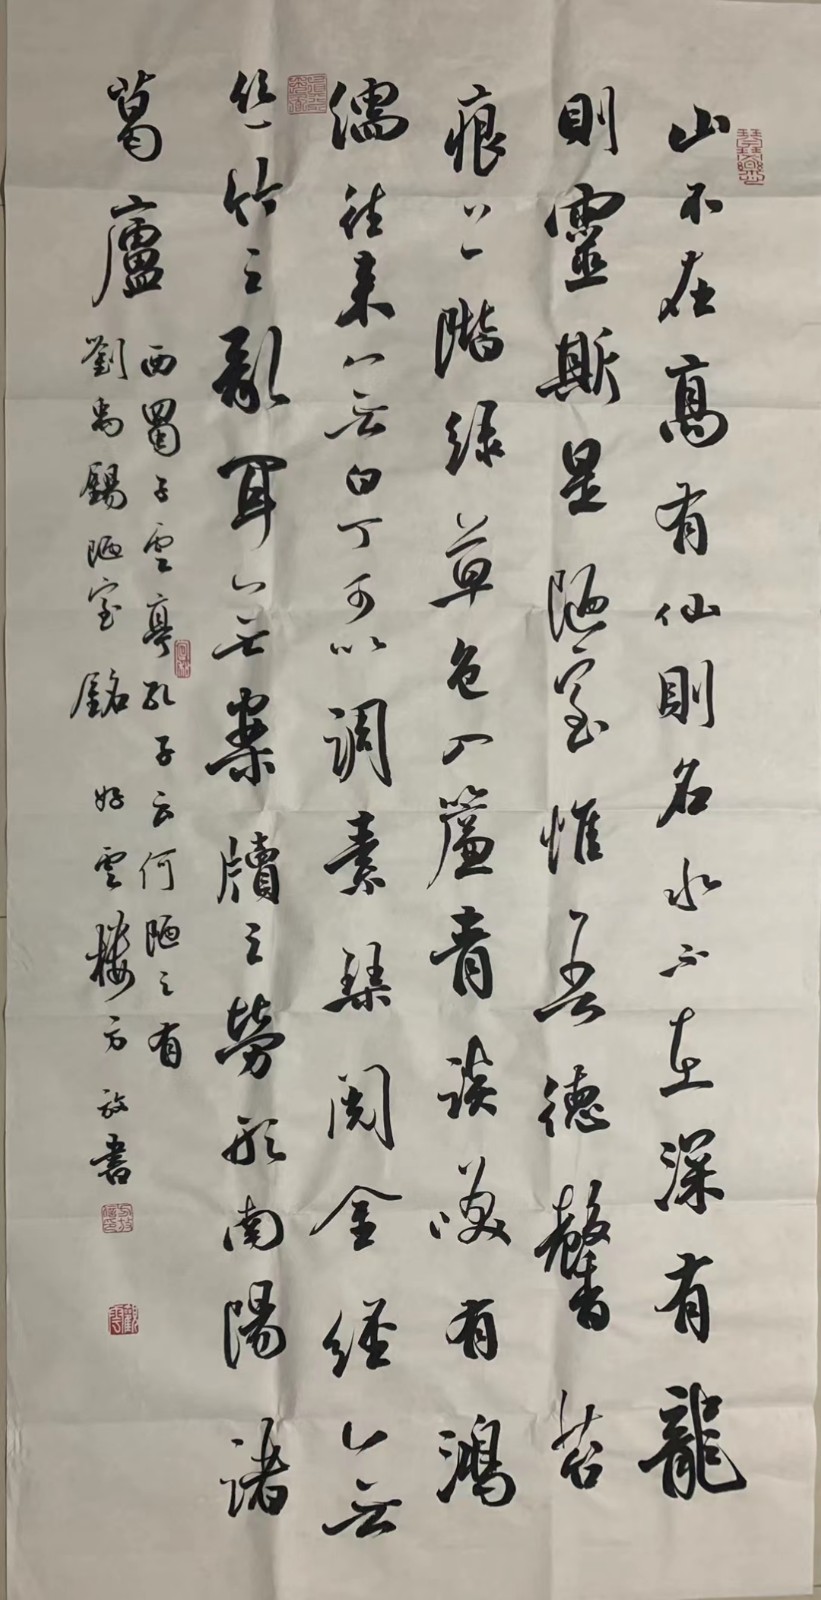 山不在高有仙則名水不在深有龍
則靈斯是陋室惟吾德馨苔
痕上階綠草色入簾青談笑有鴻
儒往來無白丁可以調素琴閱金經無
絲竹之亂耳無案牘之勞形南陽諸
葛廬
西蜀子雲亭孔子云何陋之有
劉禹錫陋室銘 好雲樓方放書